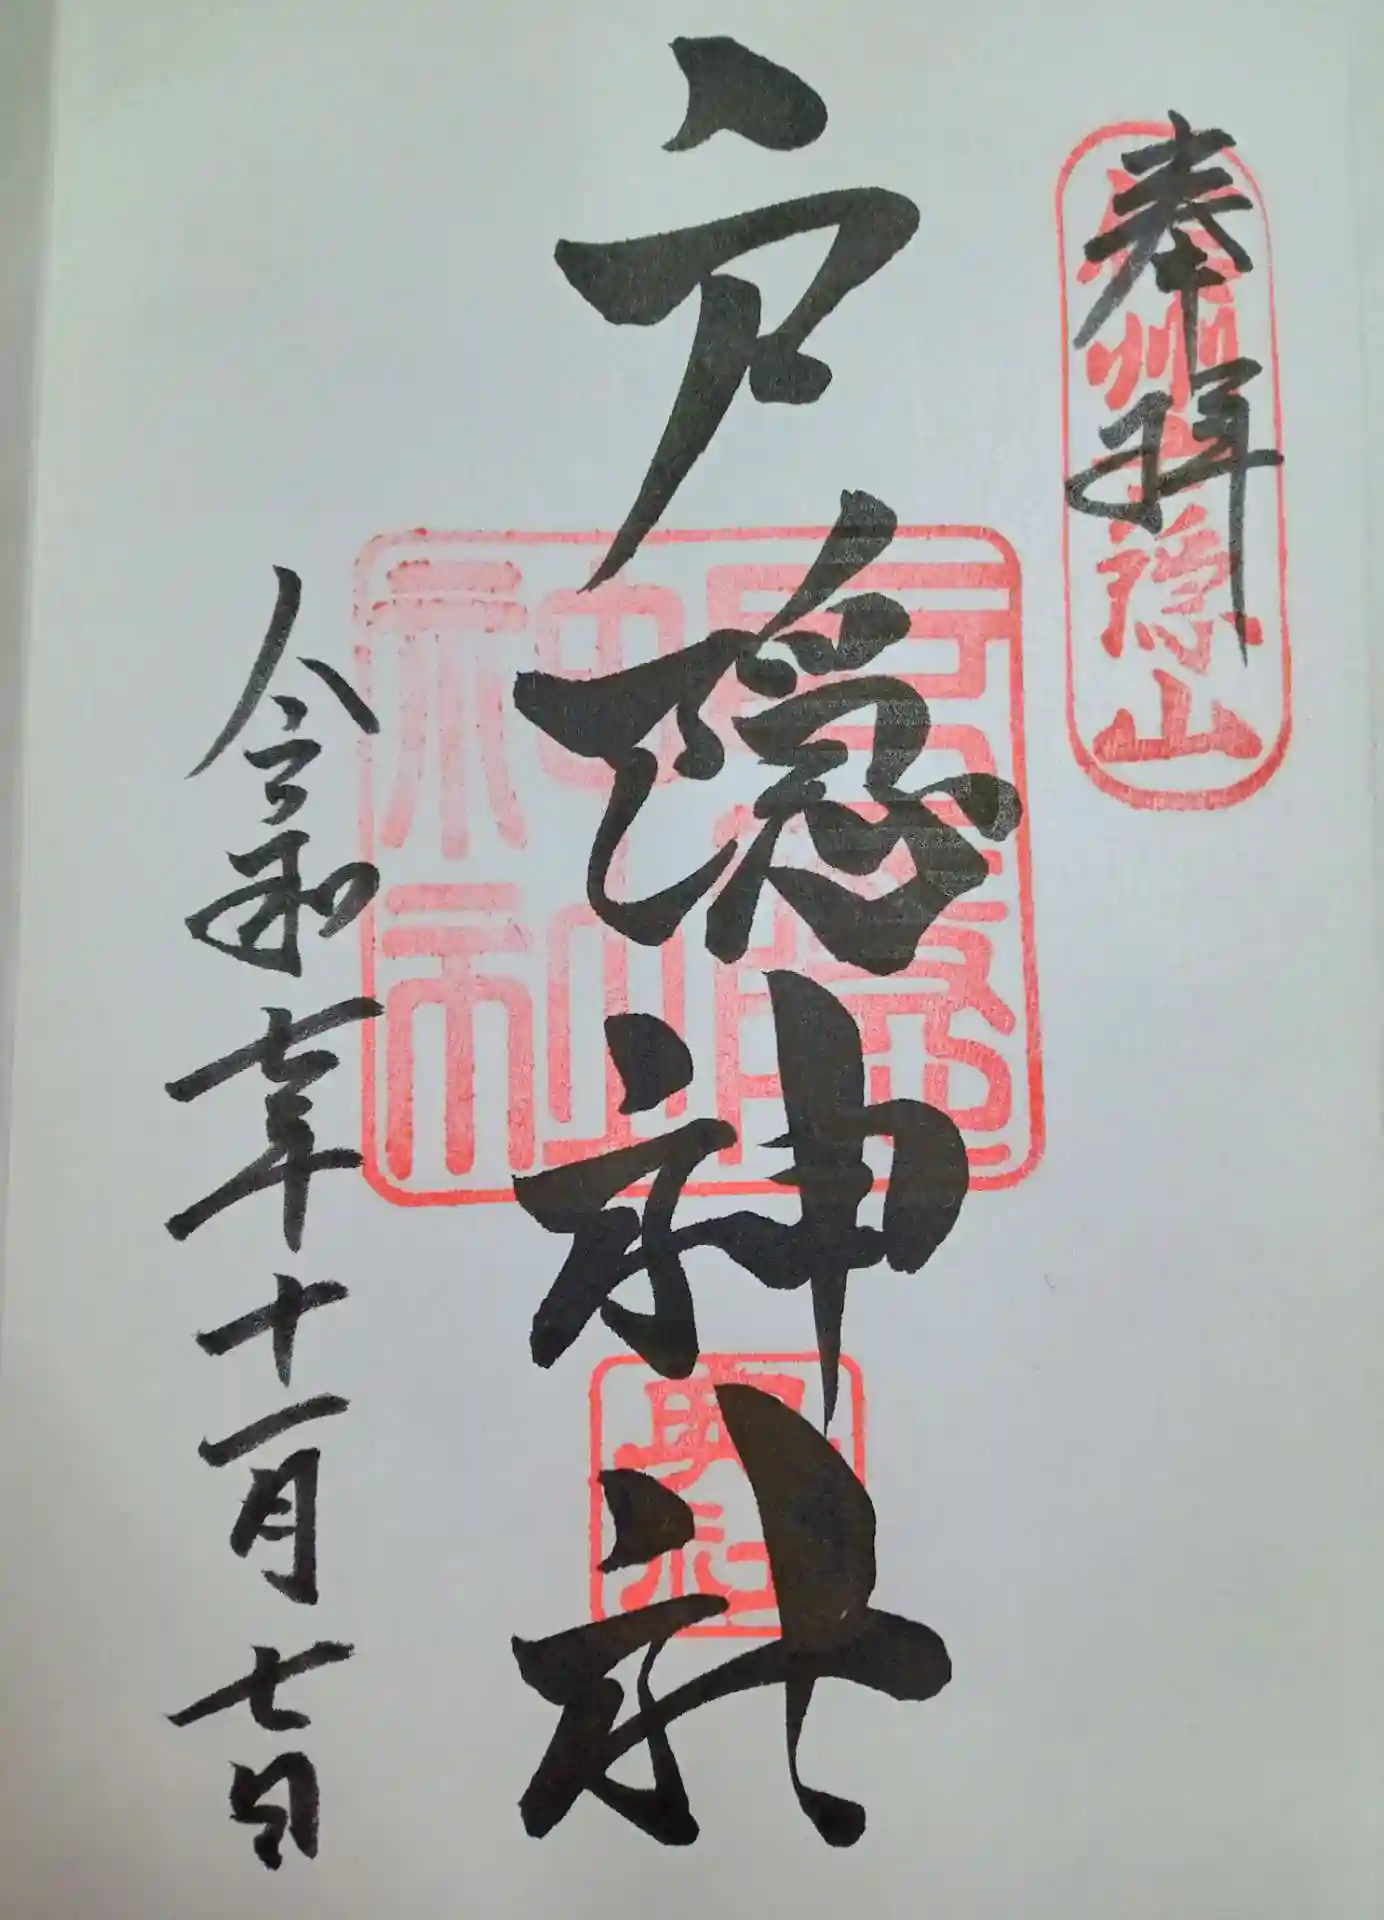 奉拝
信州戸隠山
戸隠神社
戸隠神社
奥社
令和七年十一月七日